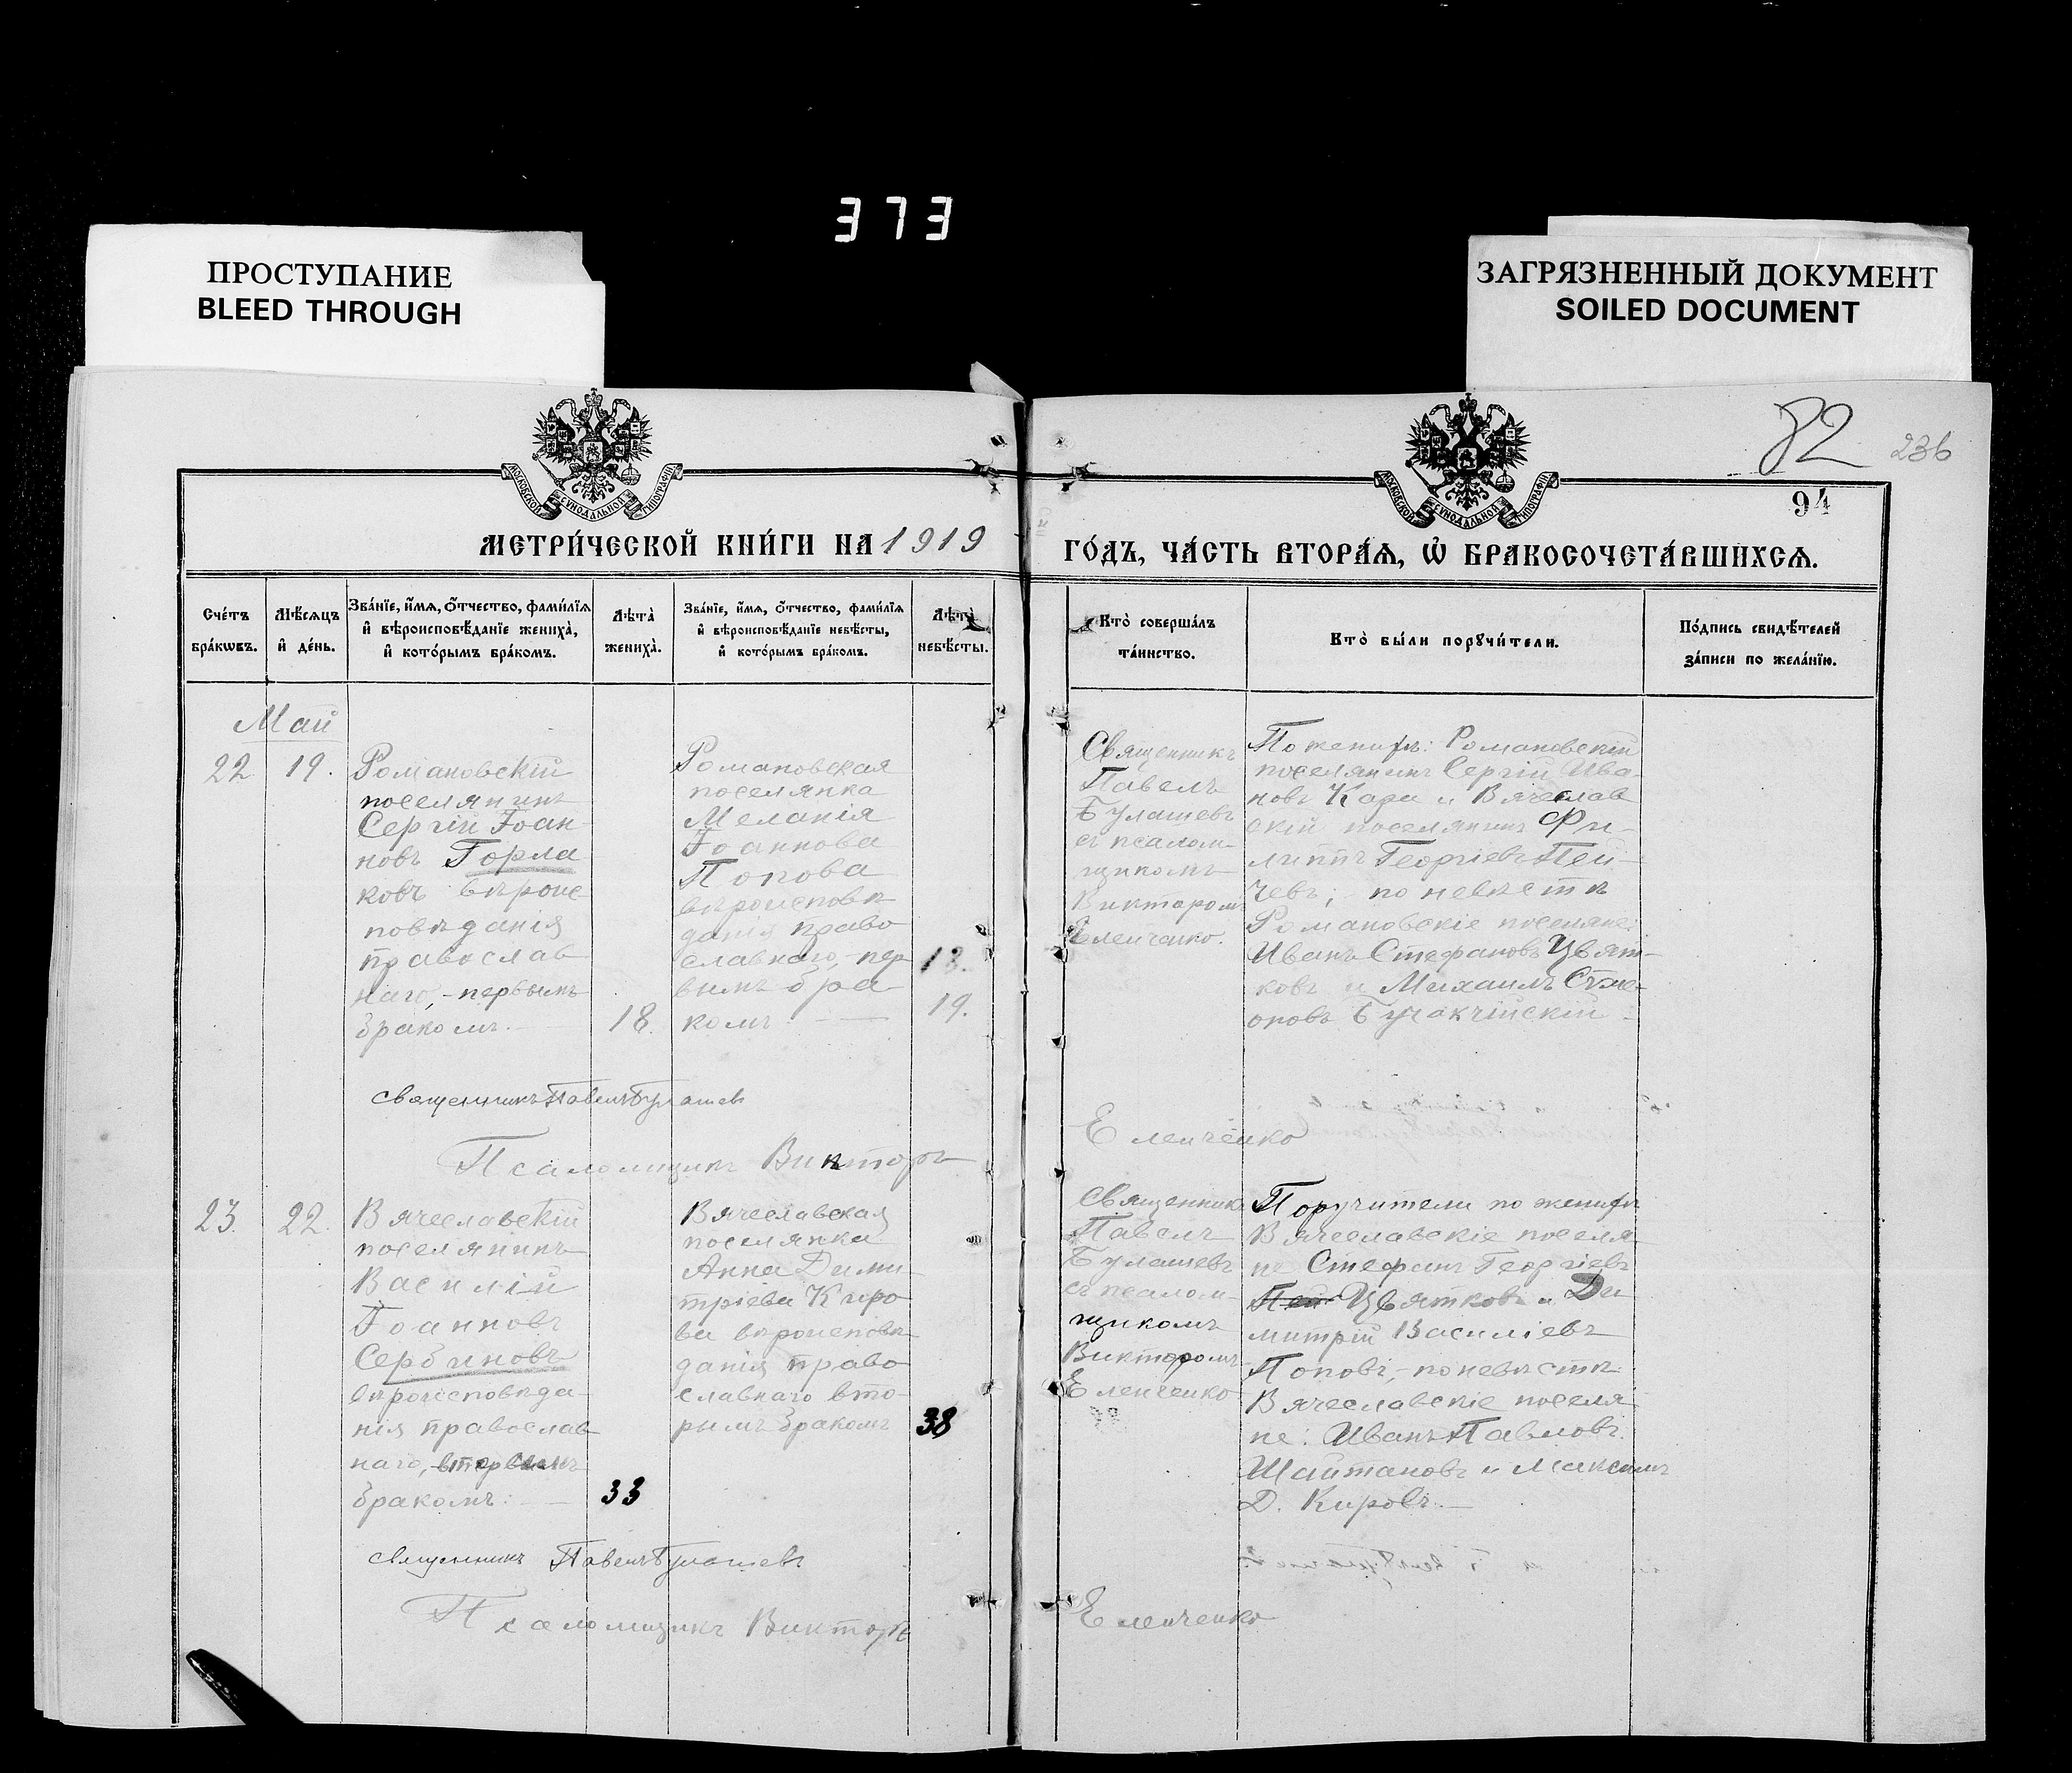 373
ПРОСТУПАНИЕ
BLEED THROUGH
ЗАГРЯЗНЕННЫЙ ДОКУМЕНТ
SOILED DOCUMENT
82 236
94
МОСКОВСКОЙ СѴНОДАЛЬНОЙ ТИПОГРАФІИ
МОСКОВСКОЙ СѴНОДАЛЬНОЙ ТИПОГРАФІИ
МЕТРИ́ЧЕСКОЙ КНИ́ГИ НА 1919
ГО́ДЪ, ЧА́СТЬ ВТОРА́Ѧ, Ѽ БРАКОСОЧЕТА́ВШИХСѦ.
Сче́тъ
бра́кѡвъ.
Мѣ́сѧцъ
и҆ де́нь.
Зва́нїе, и҆́мѧ, ѻ҆́тчество, фами́лїѧ
и҆ вѣроисповѣ́данїе жениха̀,
и҆ кото́рымъ бра́комъ.
Лѣта̀
жениха̀.
Зва́нїе, и҆́мѧ, ѻ҆́тчество, фами́лїѧ
и҆ вѣроисповѣ́данїе невѣ́сты,
и҆ кото́рымъ бра́комъ.
Лѣта̀
невѣ́сты.
Кто̀ соверша́лъ
та́инство.
Кто̀ бы́ли порꙋчи́тели.
По́дпись свидѣ́телей
за́писи по жела́нїю.
Май
22
19.
Романовскій
поселянинъ
Сергій Іоан-
новъ Горла
ковъ вѣроис
повѣданія
православ
наго,-первымъ
бракомъ.-
18.
Романовская
поселянка
Меланія
Іоаннова
Попова
вѣроисповѣ
данія право
славнаго,-пер
вымъ бра
комъ.
18.
19.
Священникъ
Павелъ
Булашевъ
съ псалом-
щикомъ
Викторомъ
Еленченко.
По женихѣ: Романовскій
поселянинъ Сергій Ива-
новъ Кара и Вячеслав
скій поселянинъ Фи-
липпъ Георгіевъ Пей-
чевъ; - по невѣстѣ
Романовскіе поселяне:
Иванъ Стефановъ Цвят-
ковъ и Михаилъ Симе-
оновъ Бучакчійскій.
священникъ Павелъ Булашевъ
Псаломщикъ Викторъ
Еленченко
23.
22.
Вячеславскій
поселянинъ
Василій
Іоанновъ
Сербиновъ
вѣроисповѣда-
нія православ
наго, вторымъ
бракомъ:
33
Вячеславская
поселянка
Анна Дими-
тріева Киро
ва вѣроисповѣ
данія право
славнаго вто-
рымъ бракомъ
38
Священникъ
Павелъ
Булашевъ
съ псалом-
щикомъ
Викторомъ
Еленченко
Поручители по женихѣ
Вячеславскіе поселя-
не Стефанъ Георгіевъ
Пей Цвятковъ и Ди
митрій Василіевъ
Поповъ,-по невѣстѣ
Вячеславскіе поселя
не: Иванъ Павловъ
Шайтановъ и Максимъ
Д. Кировъ.-
священникъ Павелъ Булашевъ
Псаломщикъ Викторъ
Еленченко